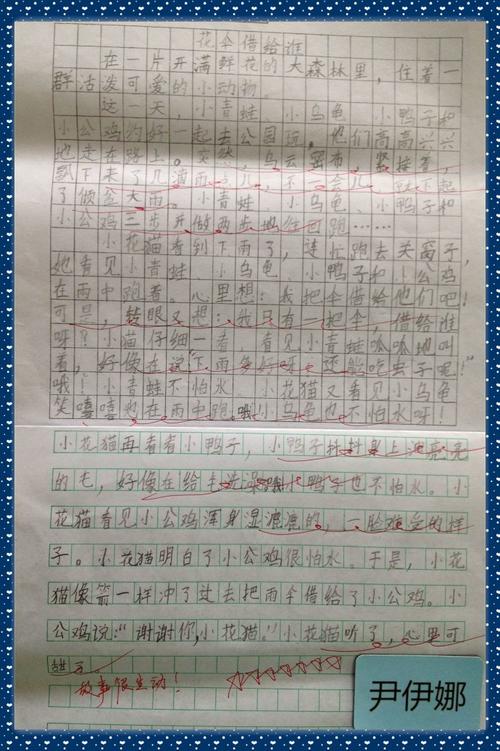 花伞借给谁
在一片开满鲜花的大森林里，住着一
群活发可爱的小动物。
这一天，小青蛙、小乌龟、小鸭子和
小公鸡约好一起去公园玩，他们高高兴兴
地走在路上。突然，乌云密布，紧接着，
飘下来了几滴雨点儿，不一会儿，就下起
了倾盆大雨。小青蛙、小乌龟、小鸭子和
小公鸡三步并做两步地往回跑……
小花猫看到下雨了，连忙跑去关窗子，
她看见小青蛙、小乌龟、小鸭子和小公鸡
在雨中跑着。心里想：我把伞借给他们吧！
可是，转眼又想：我只有一把伞，借给谁
呀？小猫仔细一看，看见小青蛙呱呱地叫
着，好像在说下雨多好呀，还能吃虫子呢！
哦！小青蛙不怕水，小花猫又看见小乌龟
笑嘻嘻地在雨中跑。哦小乌龟也不怕水呀！
小花猫再看看小鸭子，小鸭子抖抖身上漂亮亮
的毛，好像在给毛洗澡哦小鸭子也不怕水。小
花猫看见小公鸡浑身湿漉漉的，一脸难受的样
子。小花猫明白了小公鸡很怕水。于是，小花
猫像箭一样冲了过去把雨伞借给了小公鸡。小
公鸡说：“谢谢你，小花猫。”小花猫听了，心里可
甜了
故事很生动！
尹伊娜